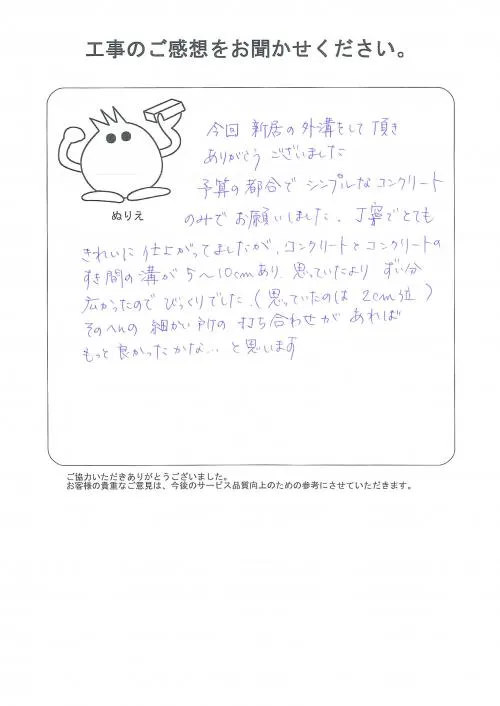 工事のご感想をお聞かせください。
今回 新居の外溝をして頂き
ありがとう ございました
予算の都合で シンプルな コンクリート
ぬりえ
のみで お願いしました。丁寧でとても
きれいに 仕上がってましたが、コンクリートとコンクリートの
すき間の溝が 5～10cmあり、思っていたより ずい分
広かったので びっくりでした。(思っていたのは 2cm位)
そのへんの 細かい所の 打ち合わせが あれば
もっと良かったかな… と思います
ご協力いただきありがとうございました。
お客様の貴重なご意見は、今後のサービス品質向上のための参考にさせていただきます。